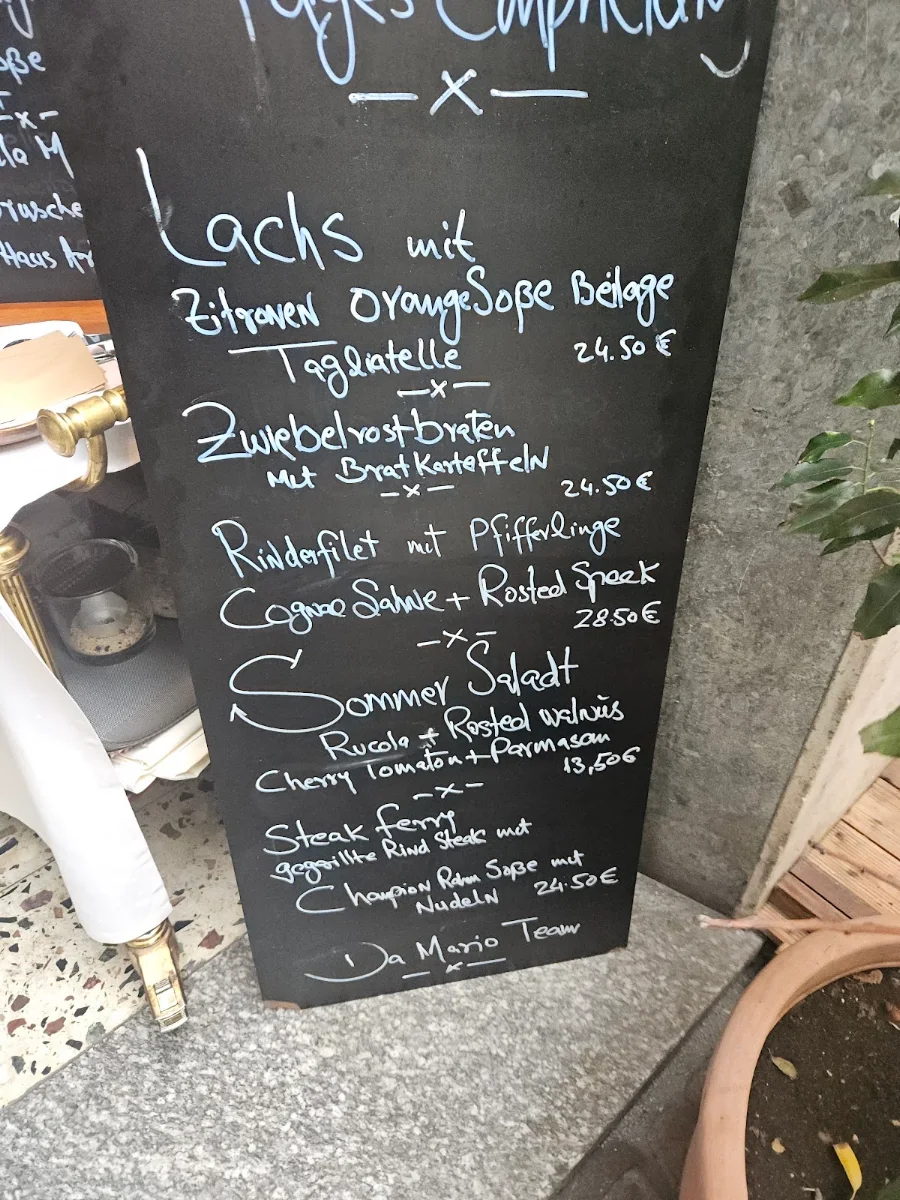 Tages Empfehlung
— x —
Lachs mit
Zitronen OrangeSoße Beilage
Tagliatelle 24.50 €
— x —
Zwiebelrostbraten
mit BratKartoffeln
24.50 €
— x —
Rinderfilet mit Pfifferlinge
Cognac Sahne + Rosted Speck
28.50 €
— x —
Sommer Saladt
Rucola + Rosted walnüs
Cherry Tomaton + Parmasan
13,50 €
— x —
Steak ferry
gegrillte Rind Steak mit
Champion Rahm Soße mit
Nudeln 24.50 €
Da Mario Team
— x —
oße
— x —
la M
rusche
Haus Ar